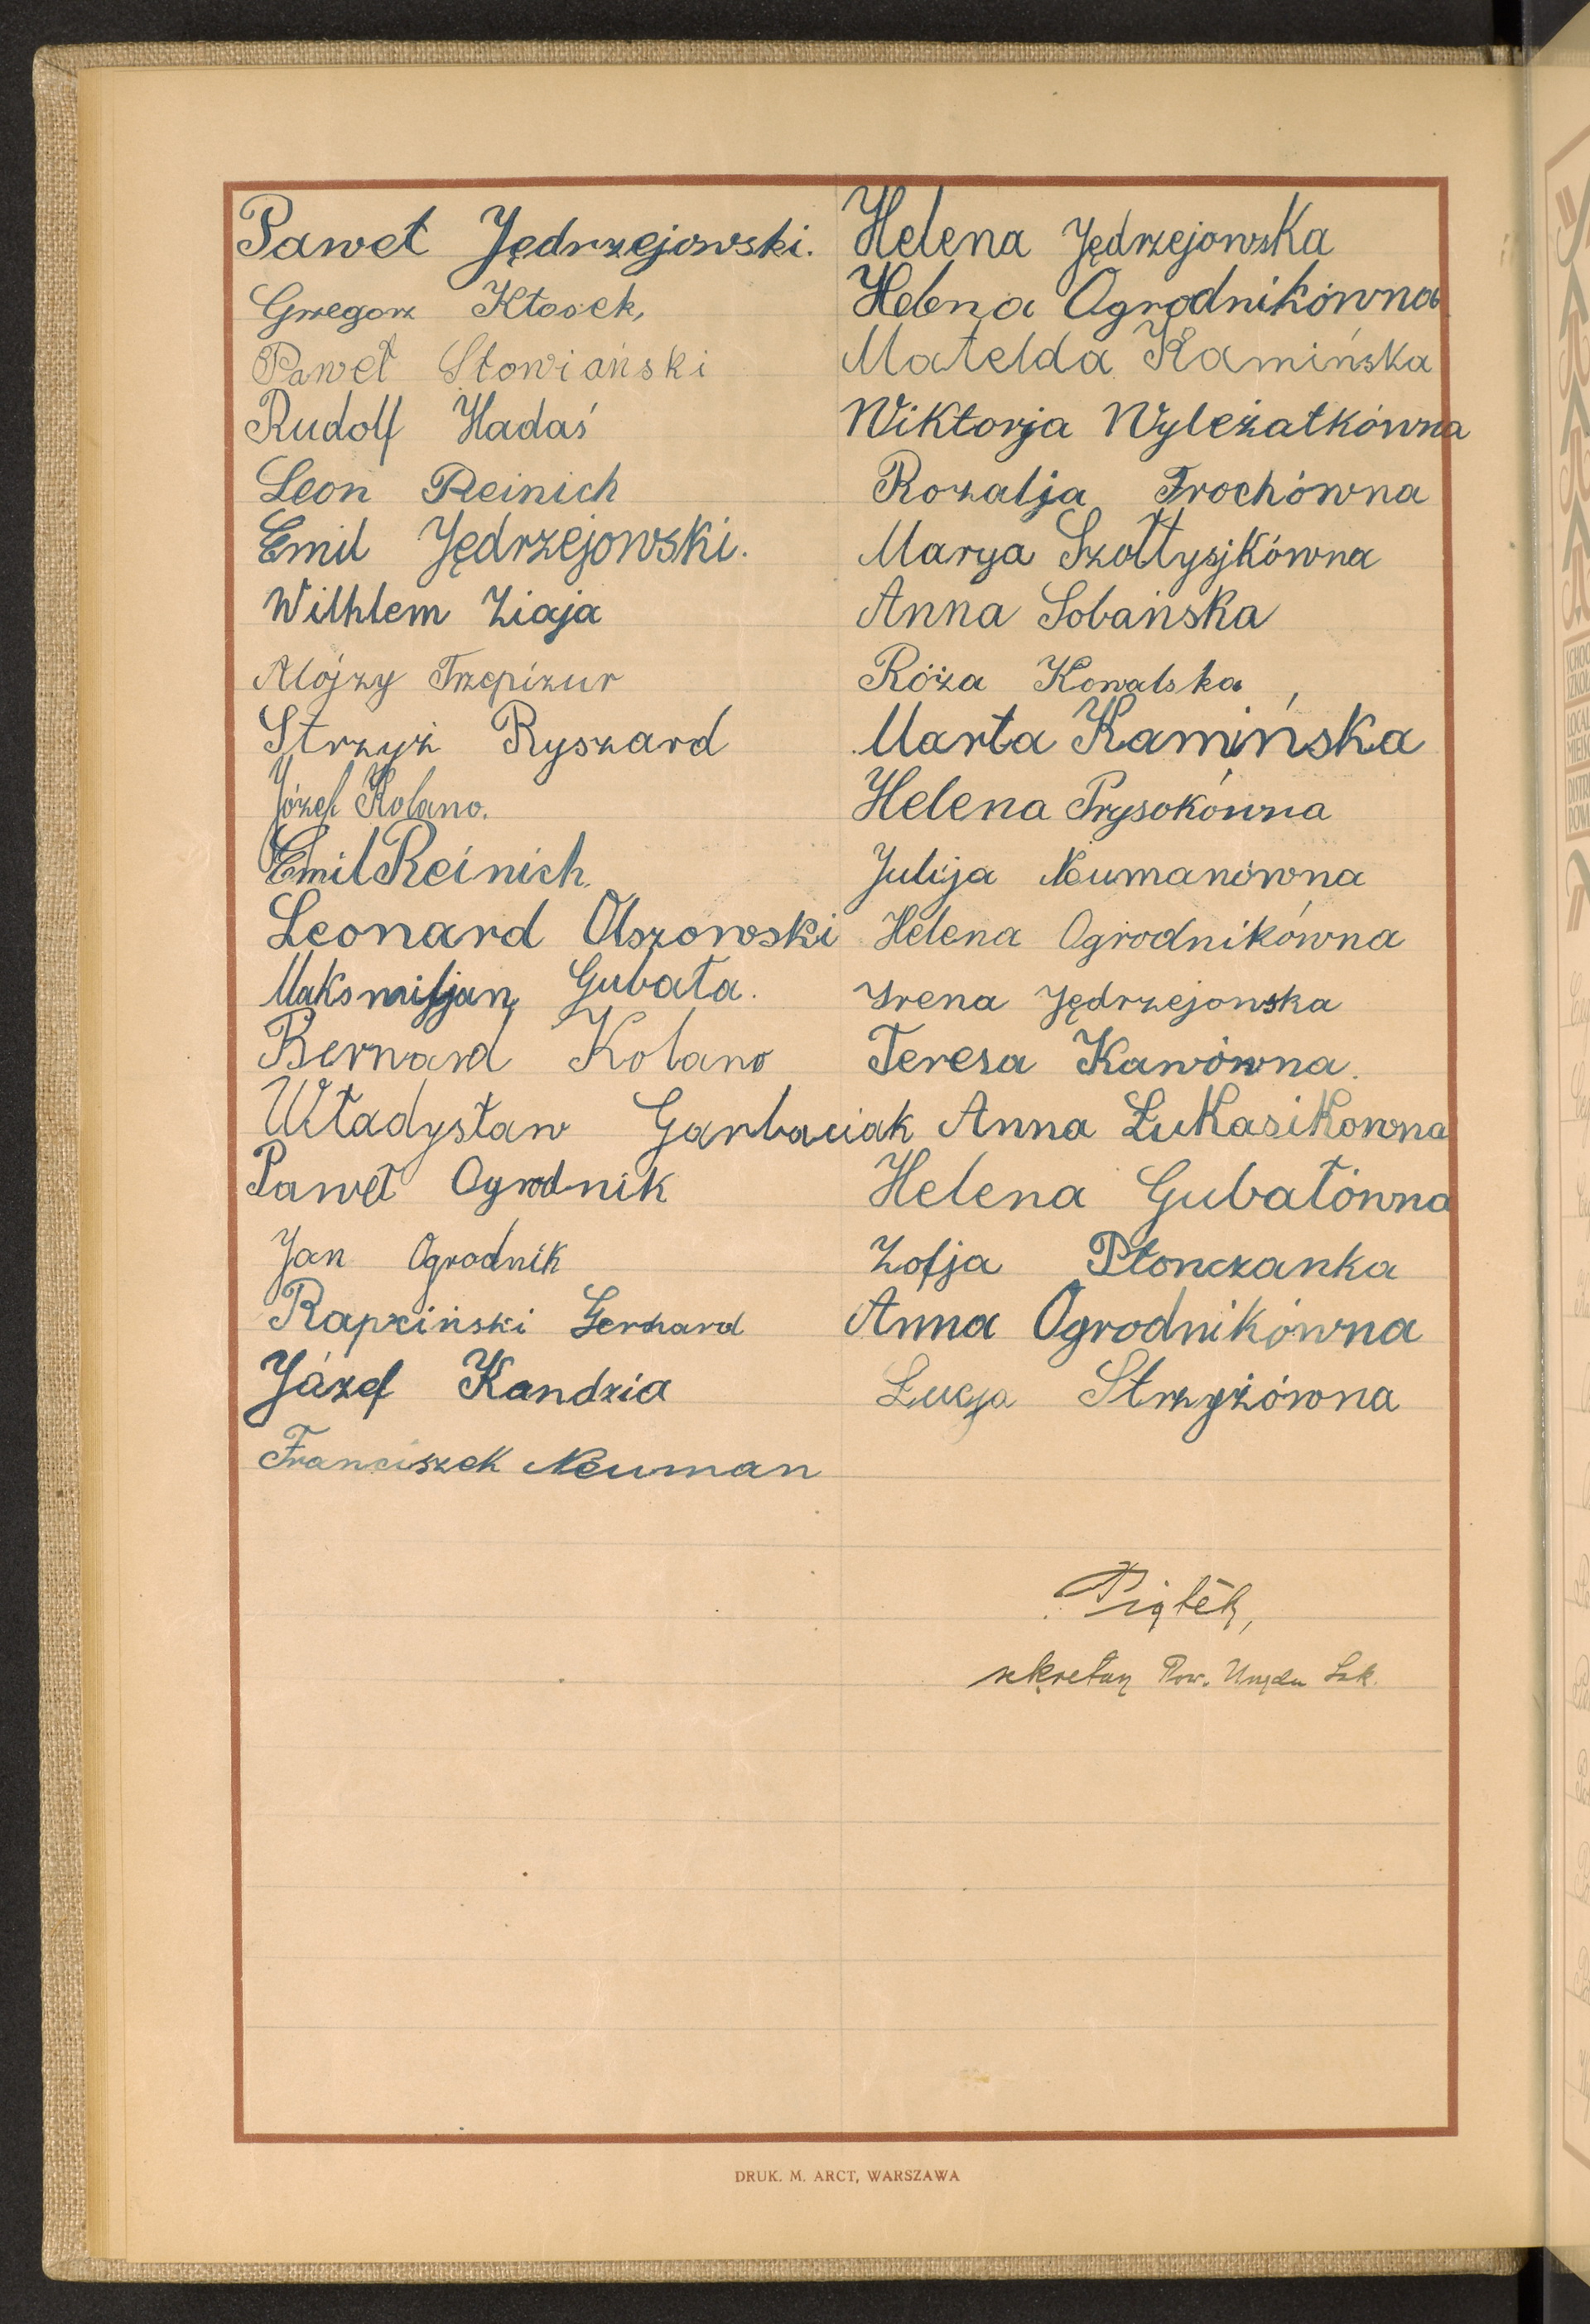 Paweł Jędrzejowski.
Grzegorz Kłosek,
Paweł Słowiański
Rudolf Hadaś
Leon Reinich
Emil Jędrzejowski.
Wilhlem Ziaja
Alojzy Trzepizur
Strzyż Ryszard
Józef Kolano.
Emil Reinich.
Leonard Olszowski
Maksmiljan Gubała.
Bernard Kolano
Władysław Garbaciak
Paweł Ogrodnik
Jan Ogrodnik
Rapciński Gerhard
Józef Kandzia
Franciszek Neuman
Helena Jędrzejowska
Helena Ogrodnikówna
Matelda Kamińska
Wiktorja Wyleżałkówna
Rozalja Frochówna
Marya Szołtysjkówna
Anna Sobańska
Róża Kowalska
Marta Kamińska
Helena Prysokówna
Julija Neumanówna
Helena Ogrodnikówna
Irena Jędrzejowska
Teresa Kawówna.
Anna Łukasikowna
Helena Gubałówna
Zofja Płonczanka
Anna Ogrodnikówna
Łucja Strzyżówna
Piątek,
sekretarz Pow. Urzędu Szk.
DRUK. M. ARCT, WARSZAWA